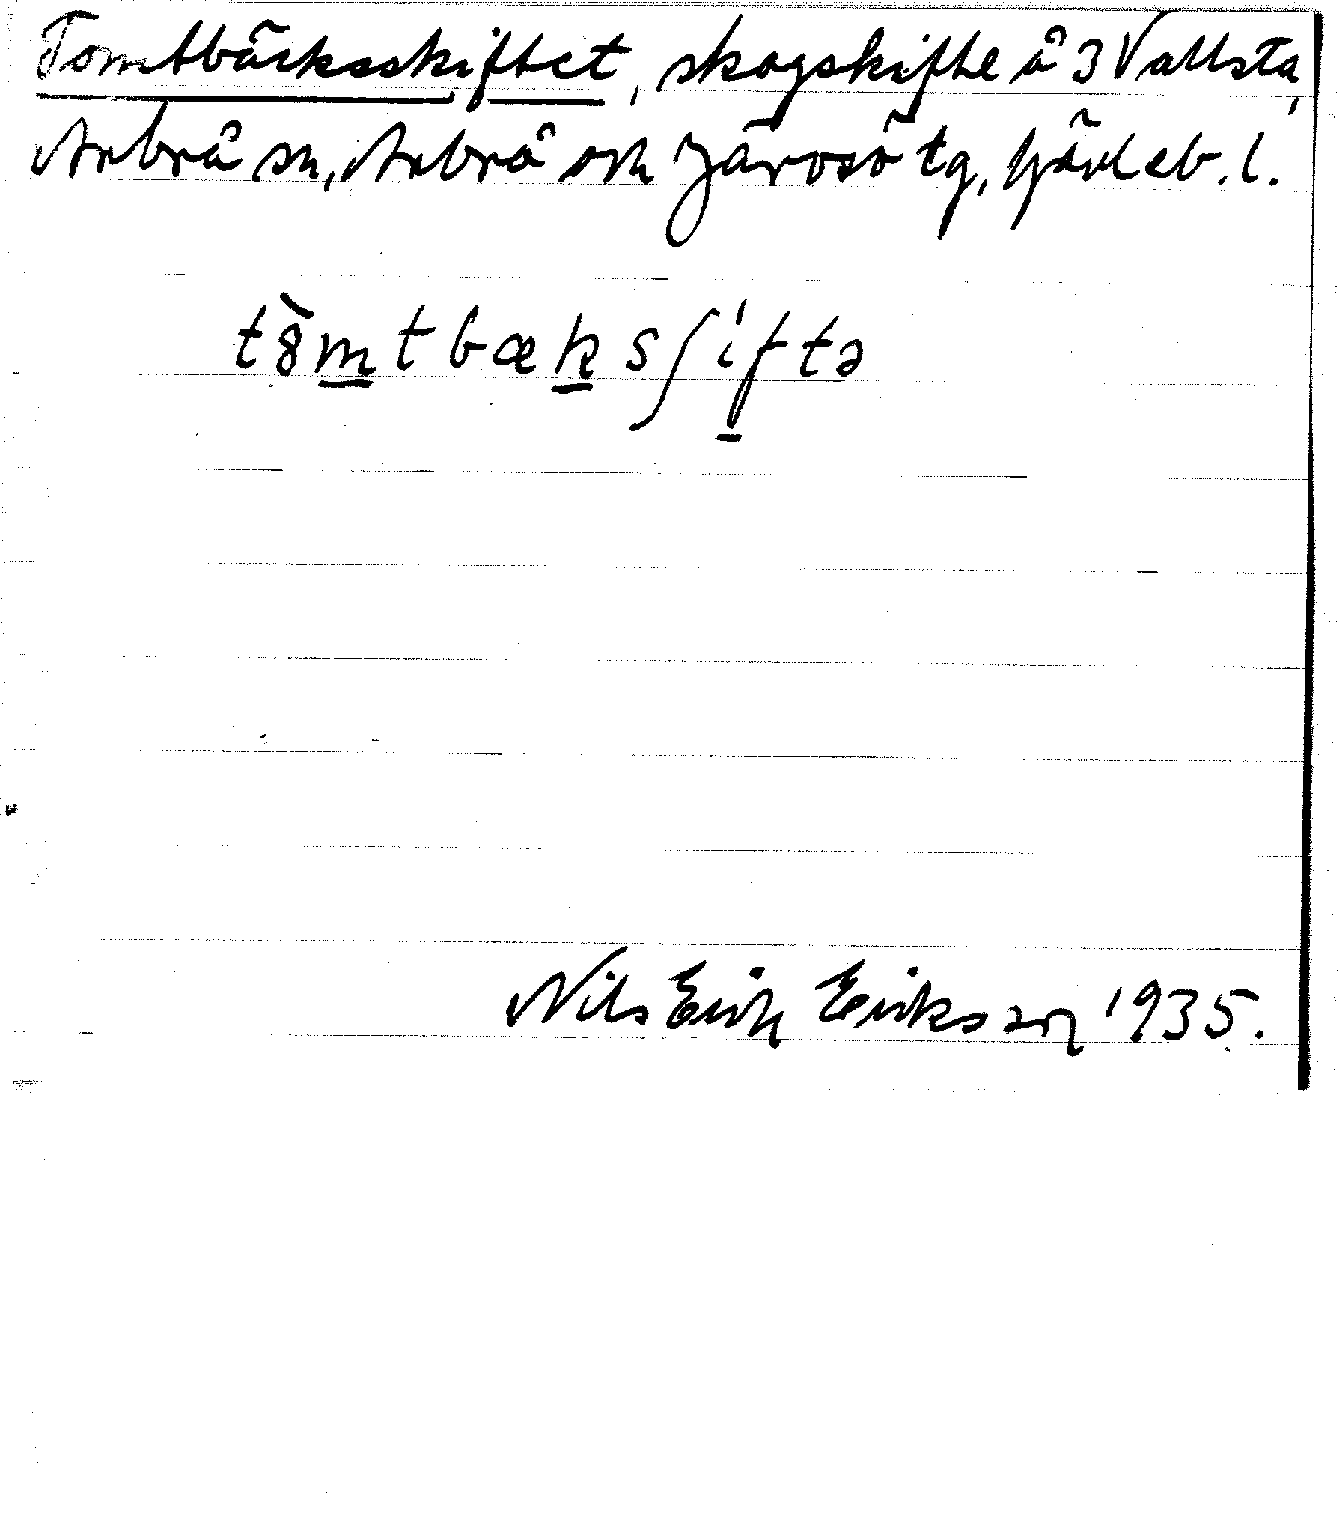 Tomtbäcksskiftet, skogskifte å 3 Vallsta,
Arbrå sn, Arbrå och Järvsö tg, Gävleb. l.
tȣ̀mtbæksʃìftə
Nils Erik Eriksson 1935.